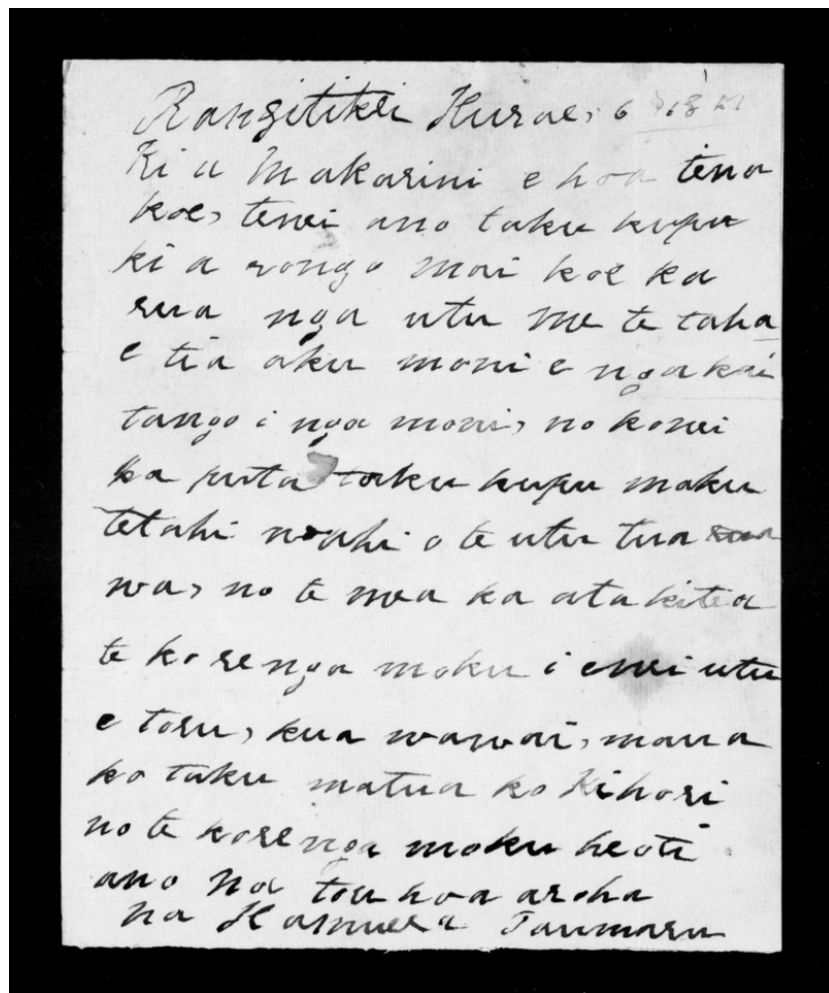 Rangitikei Hurae, 6 1851
Ki a Makarini e hoa tena
koe, tenei ano taku kupu
ki a rongo mai koe ka
rua nga utu me te taha
e tia aku moni e nga kai
tango i nga moni, no konei
ka puta taku kupu maku
tetahi wahi o te utu tua
wa, no te mea ka ata kitea
te korenga moku i enei utu
e toru, kua wawai, maua
ko taku matua ko Kihori
no te korenga moku heoti
ano Na tou hoa aroha
na Hamuera Taumaru